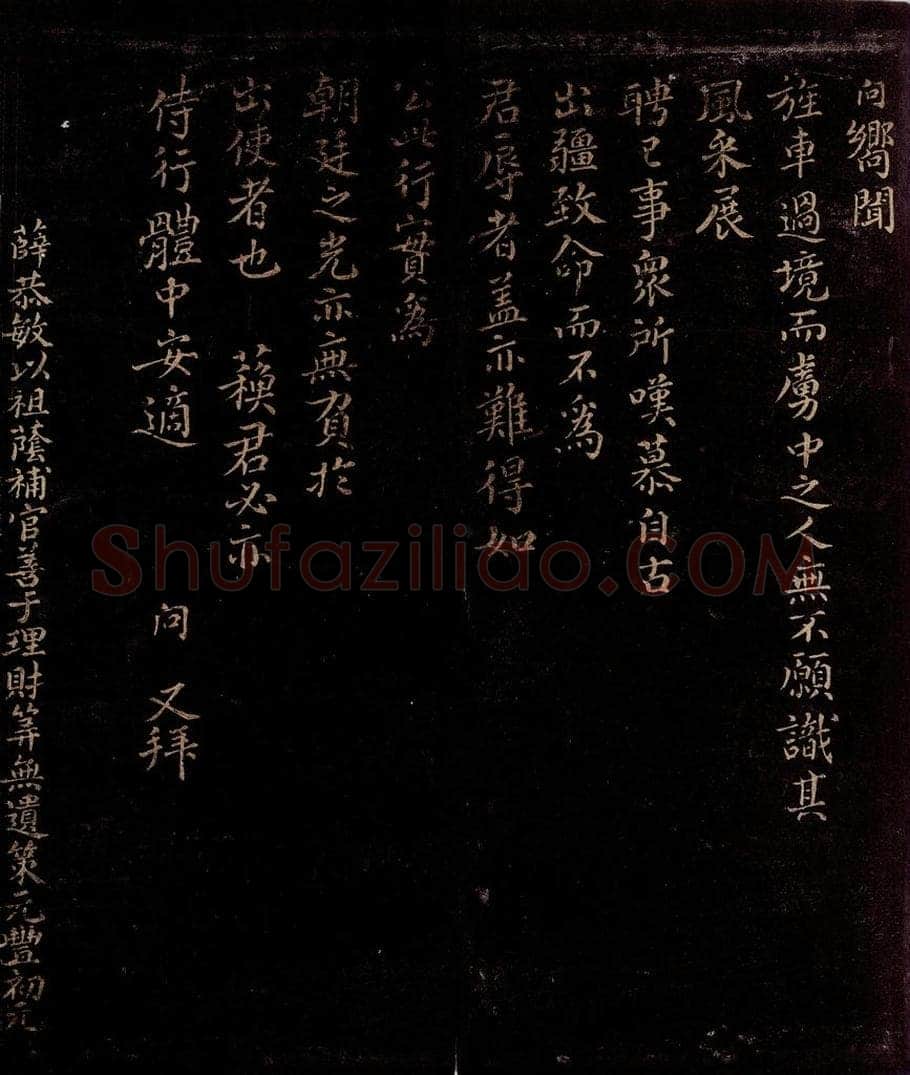 向嚮聞
旌車過境而虜中之人無不願識其
風采展
聘已事衆所嘆慕自古
出疆致命而不爲
君辱者盖亦難得如
公此行實爲
朝廷之光亦無負於
出使者也 蘋君必亦
侍行體中安適 向 又拜
薛恭敏以祖蔭補官善于理財筭無遺策元豐初元
Shufaziliao.COM